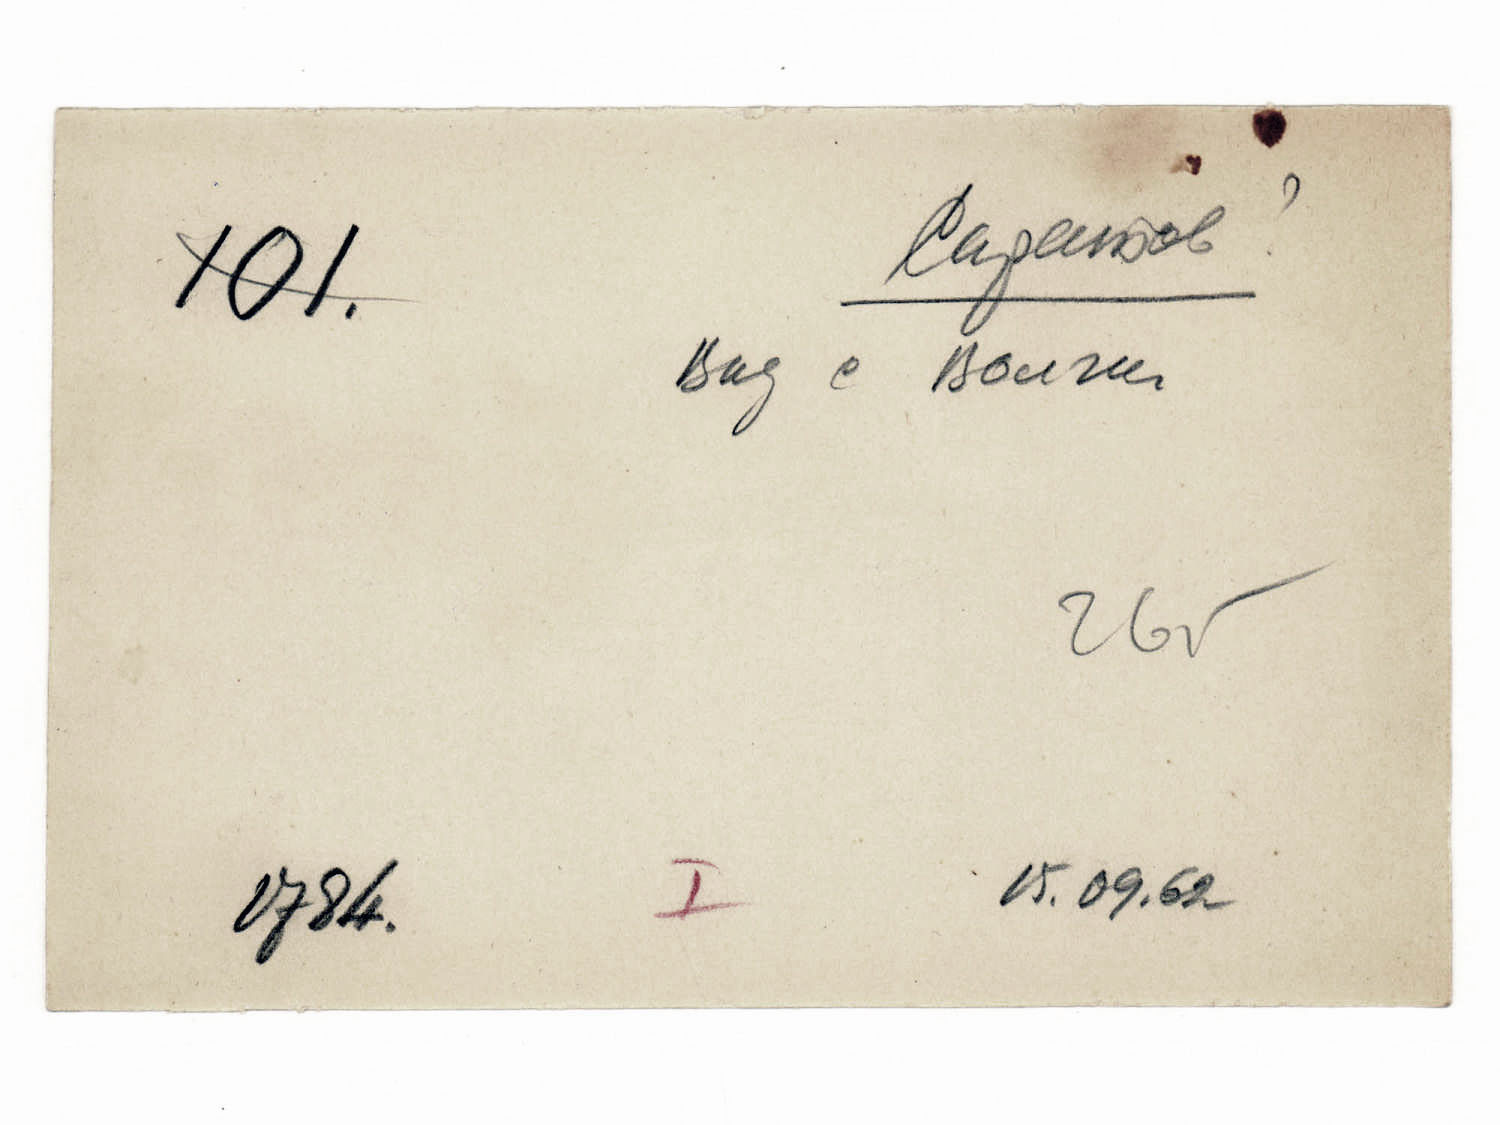 101.
Саратов ?
Вид с Волги
1784.
I
15.09.62